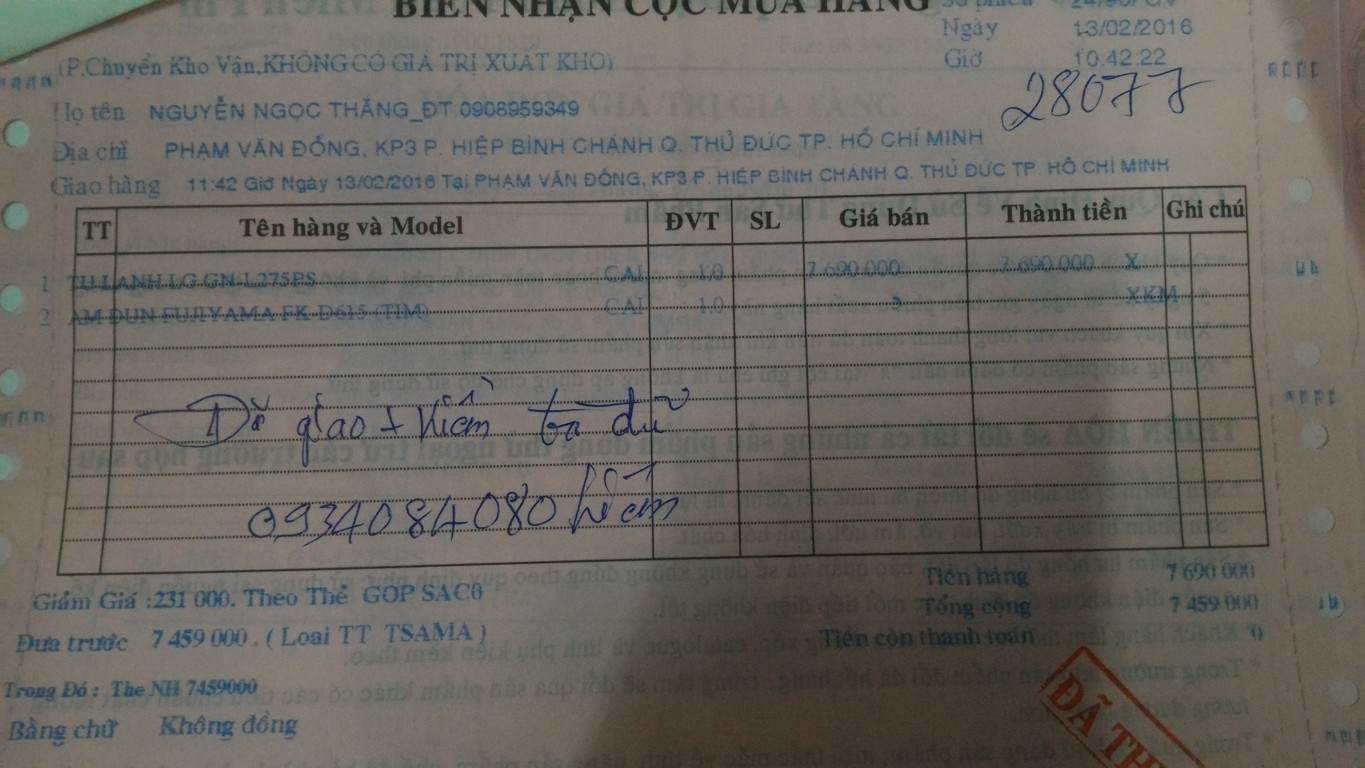 BIÊN NHẬN CỌC MUA HÀNG
Ngày 13/02/2016
(P.Chuyển Kho Vận,KHÔNG CÓ GIÁ TRỊ XUẤT KHO) Giờ 10:42:22
28077
Họ tên NGUYỄN NGỌC THĂNG_ĐT.0908959349
Địa chỉ PHẠM VĂN ĐỒNG, KP3 P. HIỆP BÌNH CHÁNH Q. THỦ ĐỨC TP. HỒ CHÍ MINH
Giao hàng 11:42 Giờ Ngày 13/02/2016 Tại PHẠM VĂN ĐỒNG, KP3 P. HIỆP BÌNH CHÁNH Q. THỦ ĐỨC TP. HỒ CHÍ MINH
TT Tên hàng và Model ĐVT SL Giá bán Thành tiền Ghi chú
1 TU LANH LG GN-L275PS CAI 1.0 7.690.000 7.690.000 X
2 AM DUN FUJIYAMA FK-D615 (TIM) CAI 1.0 XKM
giao + kiểm tra đủ
0934084080
Giảm Giá :231 000. Theo Thẻ GOP SACO Tiền hàng 7 690 000
Tổng cộng 7 459 000
Đưa trước 7 459 000 . ( Loai TT TSAMA ) Tiền còn thanh toán 0
Trong Đó : The NH 7459000
Bằng chữ Không đồng
ĐÃ TH